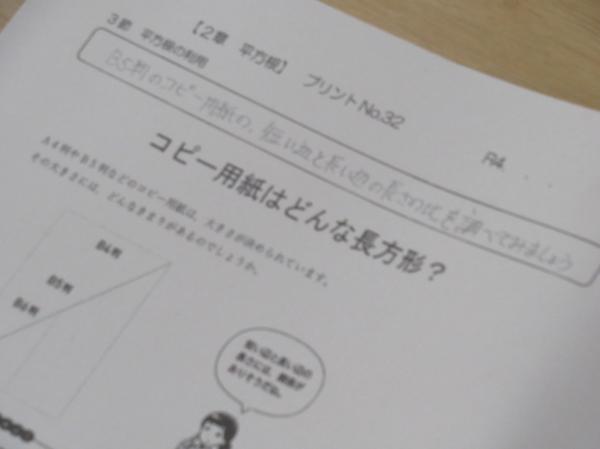 【2章 平方根】 プリントNo.32
3節 平方根の利用
R4. . .
B5判のコピー用紙の、短い辺と長い辺の長さの比を調べてみましょう
コピー用紙はどんな長方形？
A4判やB5判などのコピー用紙は、大きさが決められています。
その大きさには、どんなきまりがあるのでしょうか。
B4判
B5判
B6判
短い辺と長い辺の
長さには、関係が
ありそうだね。